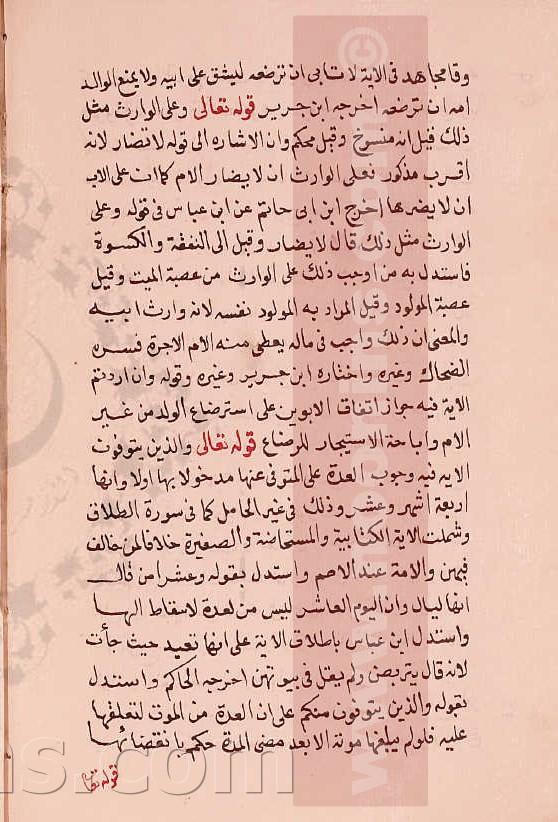 وقا مجاهد فى الاية لا تابى ان ترضعه ليشق على ابيه ولا يمنع الوالد
امه ان ترضعه اخرجه ابن جرير قوله تعالى وعلى الوارث مثل
ذلك قيل انه منسوخ وقيل محكم وان الاشاره الى قوله لا تضار لانه
اقرب مذكور فعلى الوارث ان لا يضار الام كما ان على الاب
ان لا يضرها اخرج ابن ابى حاتم عن ابن عباس فى قوله وعلى
الوارث مثل ذلك قال لا يضار وقيل الى النفقة والكسوة
فاستدل به من اوجب ذلك على الوارث من عصبة الميت وقيل
عصبة المولود وقيل المراد به المولود نفسه لانه وارث ابيه
والمعنى ان ذلك واجب فى ماله يعطى منه الام الاجرة فسره
الضحاك وغيره واختاره ابن جرير وغيره وقوله وان اردتم
الاية فيه جواز اتفاق الابوين على استرضاع الولد من غير
الام واباحة الاستيجار للرضاع قوله تعالى والذين يتوفون
الايه فيه وجوب العدة على المتوفى عنها مدخولا بها اولا وانها
اربعة اشهر وعشر وذلك فى غير الحامل كما فى سورة الطلاق
وشملت الاية الكتابية والمستحاضة والصغيرة خلافا لمن خالف
فيهن والامة عند الاصم واستدل بقوله وعشرا من قال
انها ليال وان اليوم العاشر ليس من لعدة لاسقاط الها
واستدل ابن عباس باطلاق الاية على انها تعيد حيث جأت
لانه قال يتربصن ولم يقل فى بيوتهن اخرجه الحاكم واستدل
بقوله والذين يتوفون منكم على ان العدة من الموت لتعلقها
عليه فلو لم يبلغها موته الا بعد مضى المدة حكم بانقضائها
قوله تعا